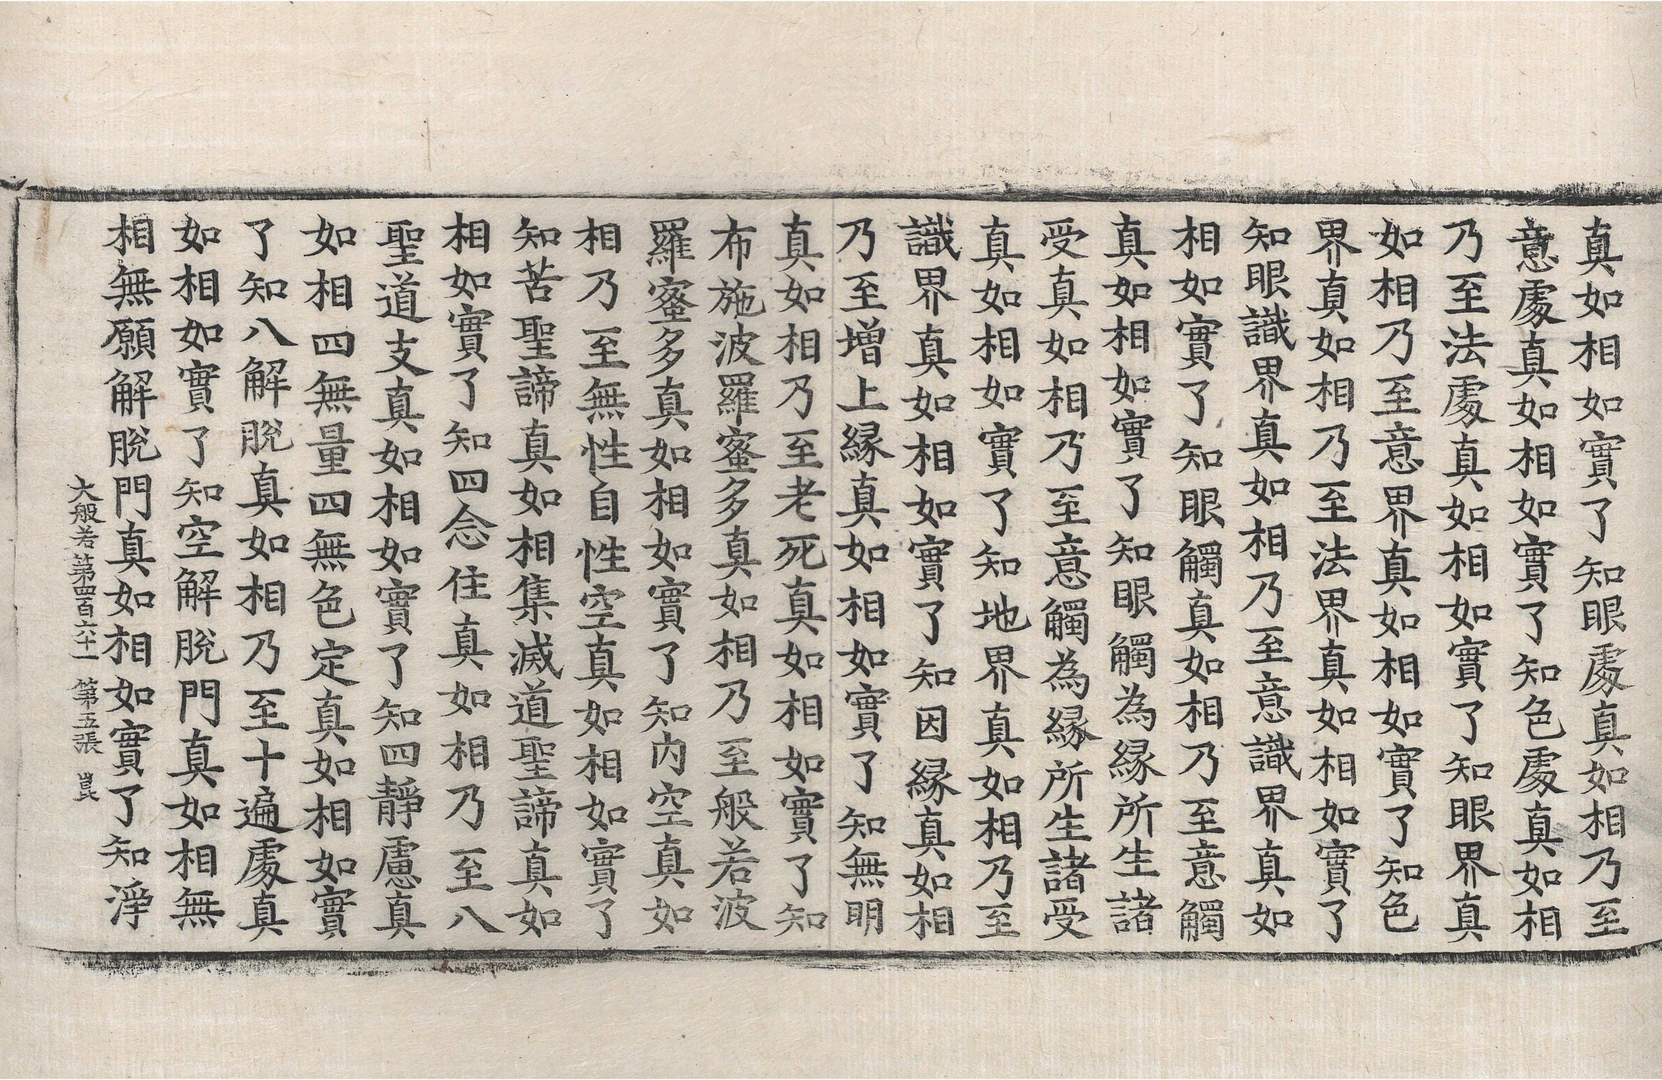 真如相如實了知眼處真如相乃至
意處真如相如實了知色處真如相
乃至法處真如相如實了知眼界真
如相乃至意界真如相如實了知色
界真如相乃至法界真如相如實了
知眼識界真如相乃至意識界真如
相如實了知眼觸真如相乃至意觸
真如相如實了知眼觸為緣所生諸
受真如相乃至意觸為緣所生諸受
真如相如實了知地界真如相乃至
識界真如相如實了知因緣真如相
乃至增上緣真如相如實了知無明
真如相乃至老死真如相如實了知
布施波羅蜜多真如相乃至般若波
羅蜜多真如相如實了知內空真如
相乃至無性自性空真如相如實了
知苦聖諦真如相集滅道聖諦真如
相如實了知四念住真如相乃至八
聖道支真如相如實了知四靜慮真
如相四無量四無色定真如相如實
了知八解脫真如相乃至十遍處真
如相如實了知空解脫門真如相無
相無願解脫門真如相如實了知淨
大般若第四百六十一 第五張 崑